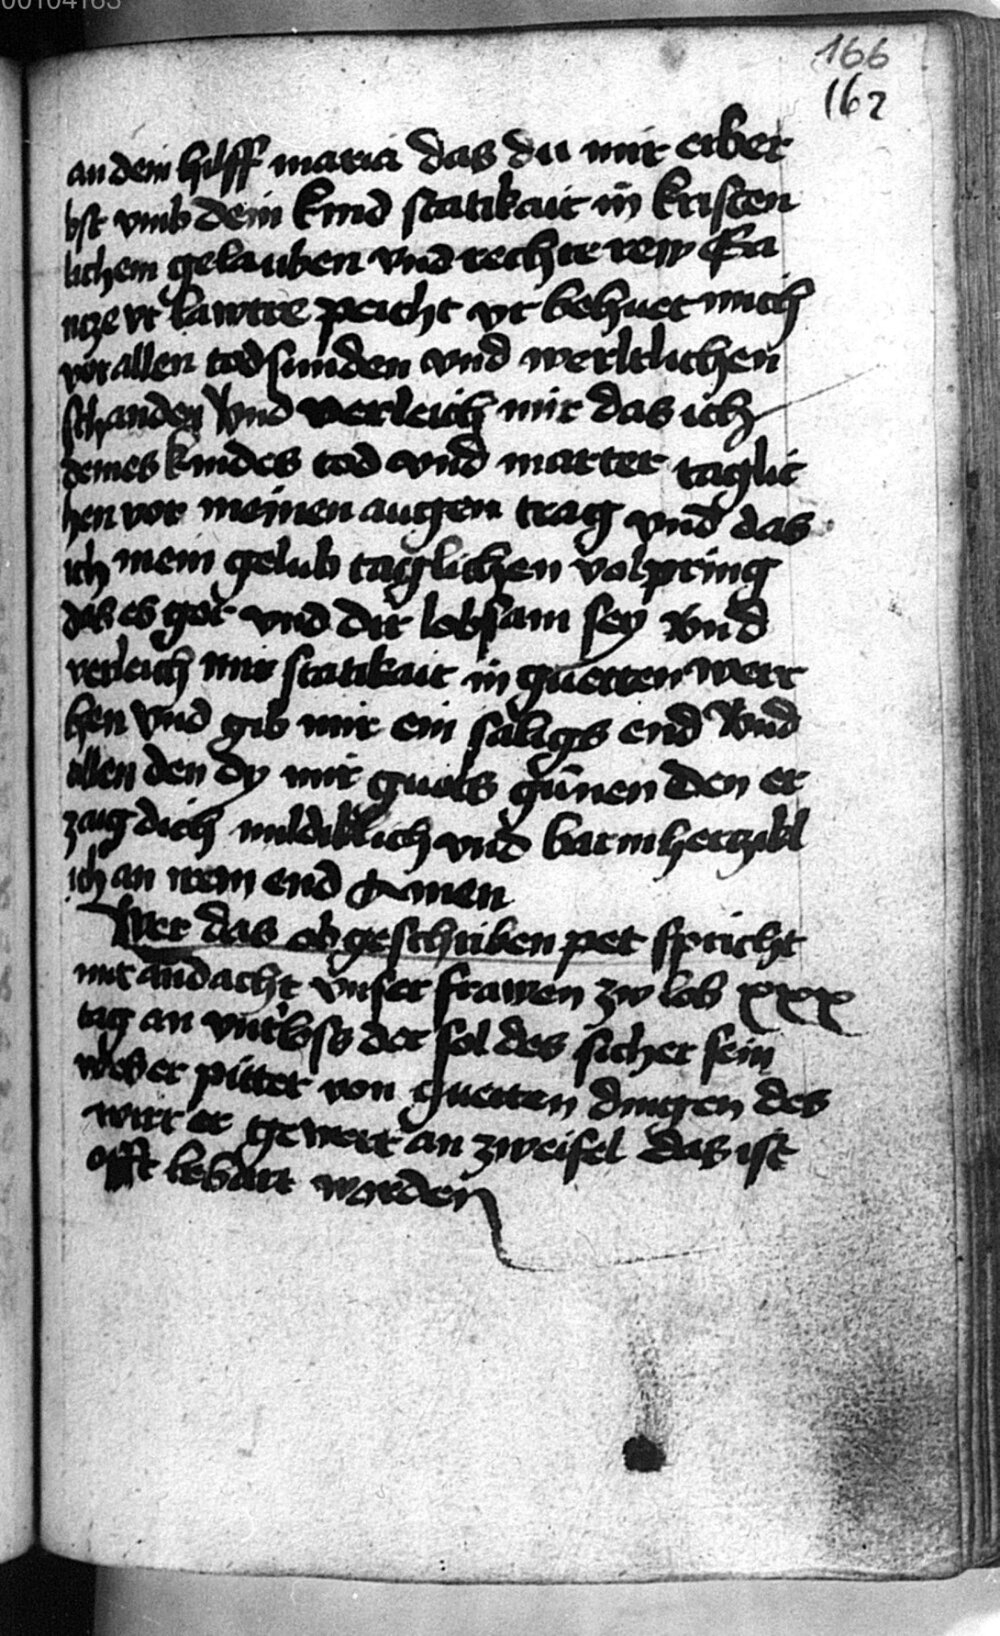 00104163
166
162
an dein hilff maria das du mir erber
bst vmb dein kind statikait in kristen
lichem gelauben vnd rechte rew Ga
ncze vt lawtre peicht vt behuet mich
vor allen todsunden vnd werltlichen
schanden Vnd verleich mir das ich
deines kindes tod vnd marter taglic
hen vor meinen augen trag vnd das
ich mein gelub taglichen volpring
das es got vnd dir lobsam sey Vnd
verleich mir statikait in guetten werc
hen Vnd gib mir ein saligs end Vnd
allen den dy mir guots günen den er
zaig dich mildiklich vnd barmherczikl
ich an irem end Amen
Wer das obgeschriben pet spricht
mit andacht vnser frawen zw lob xxx
tag an vnterloss der sol des sicher sein
wes er pittet von guetten dingen des
wirt er gewert an zweifel das ist
offt bebart worden